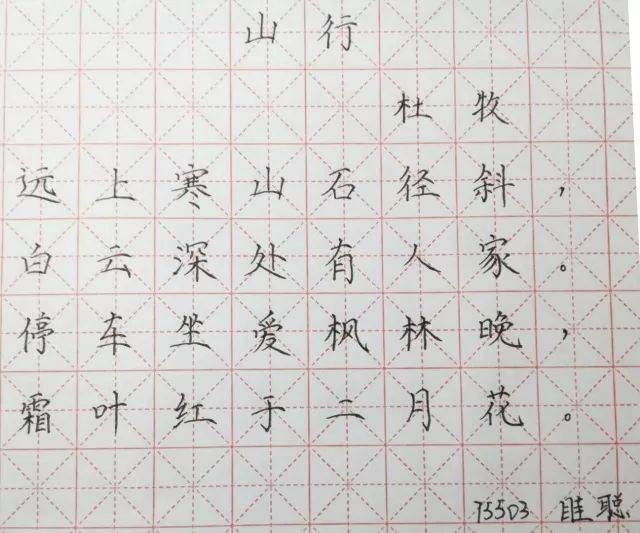 山行
杜牧
远上寒山石径斜，
白云深处有人家。
停车坐爱枫林晚，
霜叶红于二月花。
75503 眭聪